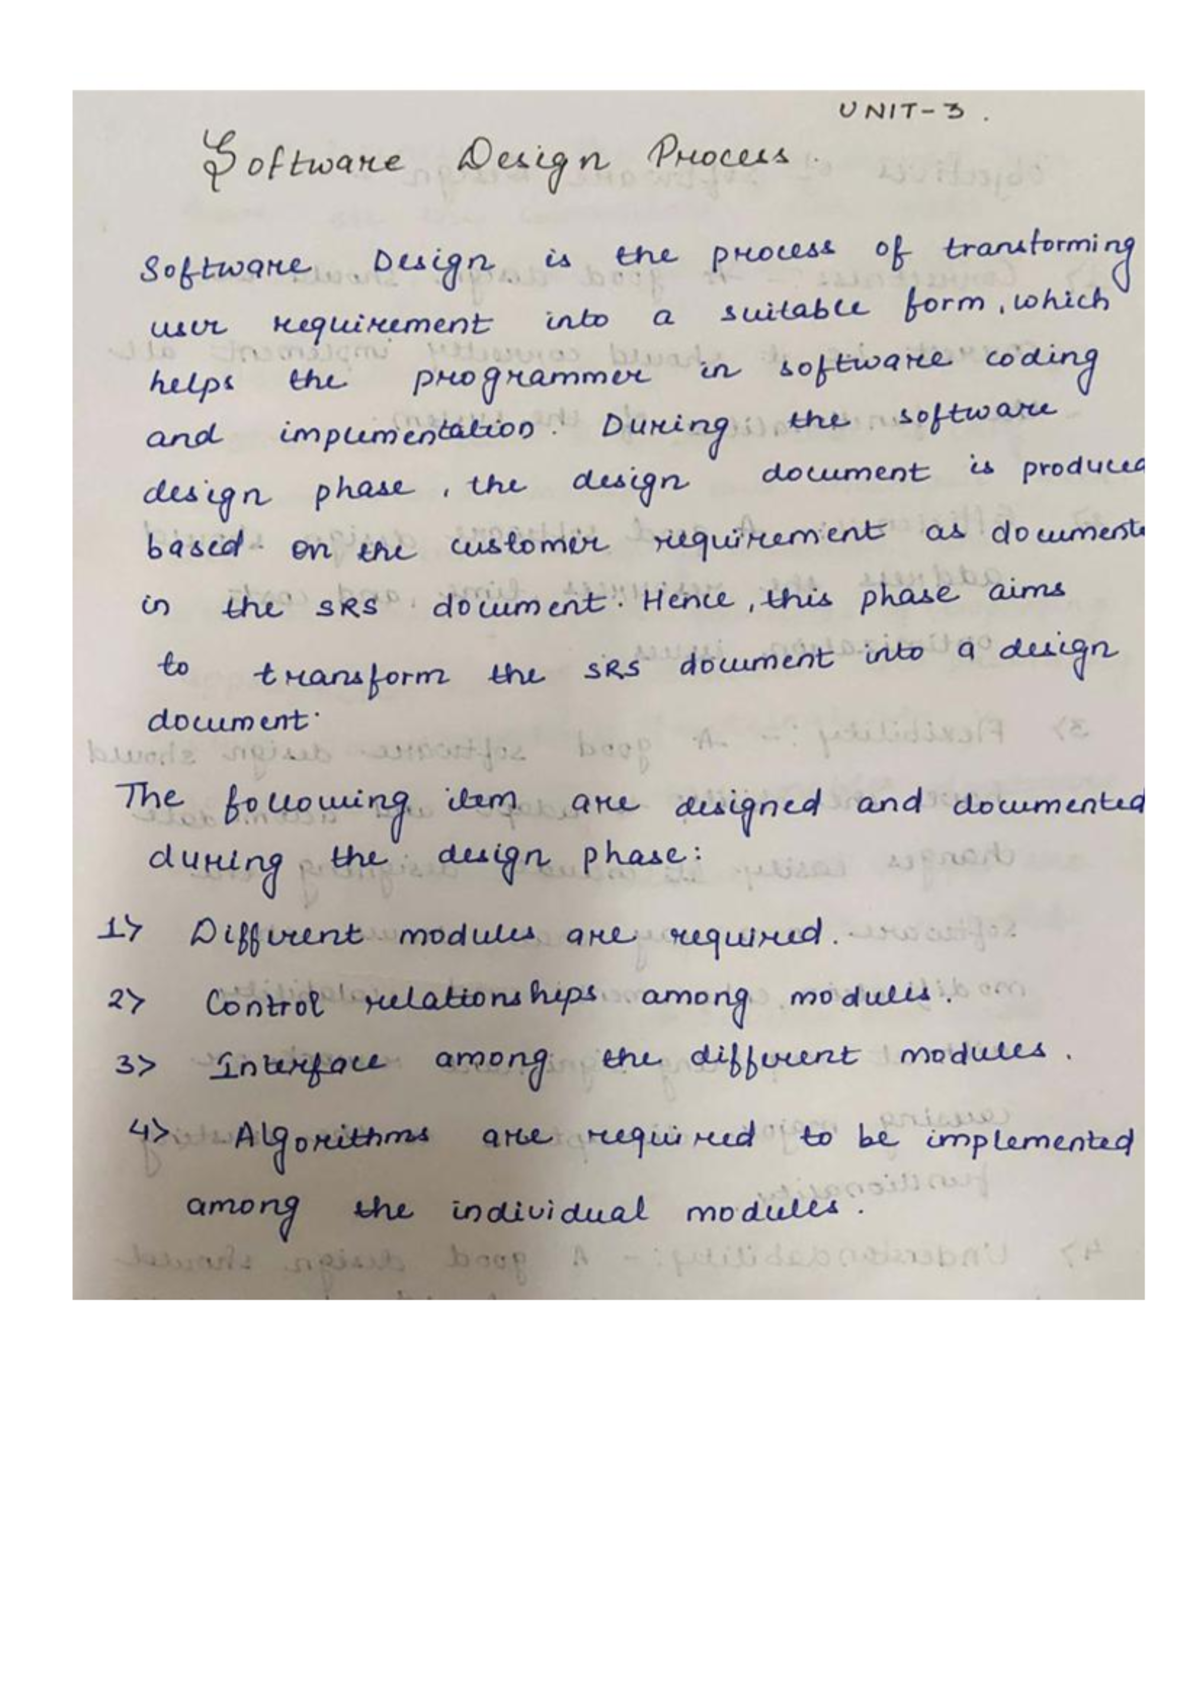 UNIT-3.
Software Design Process.
Software Design is the process of transforming
user requirement into a suitable form, which
helps the programmer in software coding
and implementation. During the software
design phase, the design document is produced
based on the customer requirement as documente
in the SRS document. Hence, this phase aims
to transform the SRS document into a design
document.
The following item are designed and documented
during the design phase:
1> Different modules are required.
2> Control relationships among modules.
3> Interface among the different modules.
4> Algorithms are required to be implemented
among the individual modules.